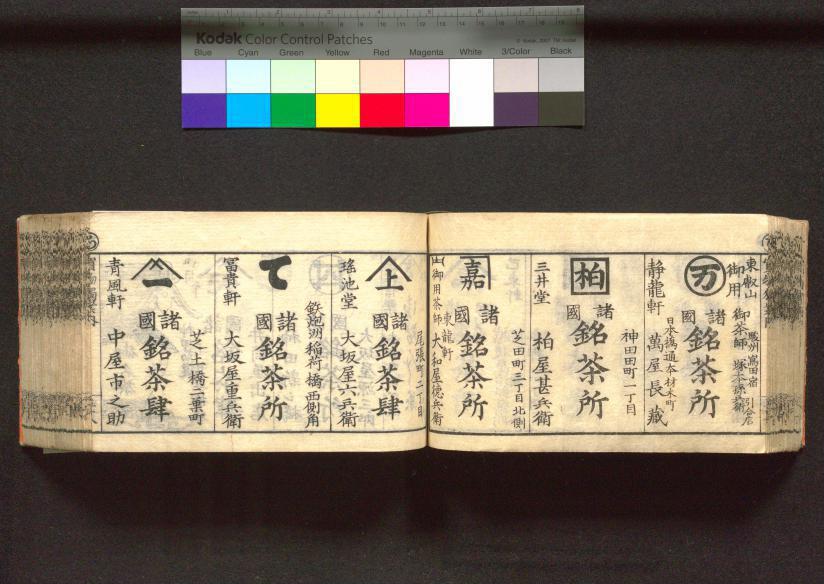 Kodak Color Control Patches
Blue Cyan Green Yellow Red Magenta White 3/Color Black
東叡山
御用 御茶師
万
諸國
銘茶所
日本橋通本材木町
静龍軒 萬屋長藏
神田田町一丁目
柏
諸國
銘茶所
三井堂 柏屋甚兵衛
芝田町三丁目北側
嘉
諸國
銘茶所
東龍軒
御用茶師 大和屋徳兵衛
尾張町二丁目
上
諸國
銘茶肆
瑤池堂 大坂屋六兵衛
鉄炮洲稲荷橋西側角
て
諸國
銘茶所
冨貴軒 大坂屋重兵衛
芝土橋二葉町
一
諸國
銘茶肆
青風軒 中屋市之助